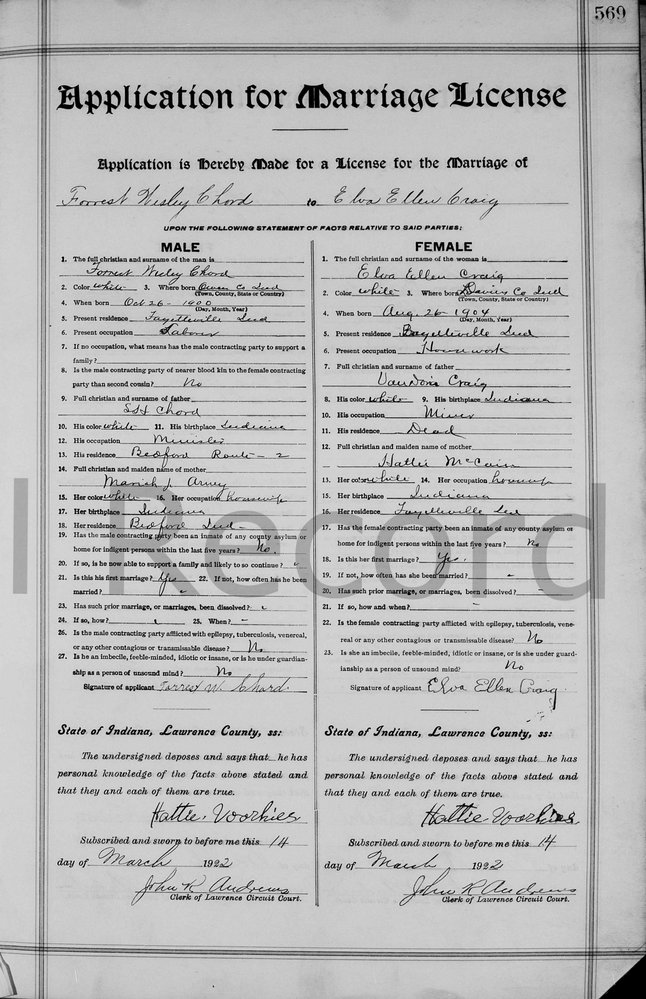 569
Application for Marriage License
Application is Hereby Made for a License for the Marriage of
Forrest Wesley Chord to Elva Ellen Craig
UPON THE FOLLOWING STATEMENT OF FACTS RELATIVE TO SAID PARTIES:
MALE
1. The full christian and surname of the man is
Forrest Wesley Chord
2. Color white 3. Where born Owen Co Ind
(Town, County, State or Country)
4. When born Oct 26 - 1900
(Day, Month, Year)
5. Present residence Fayetteville Ind
6. Present occupation Labour
7. If no occupation, what means has the male contracting party to support a
family?
8. Is the male contracting party of nearer blood kin to the female contracting
party than second cousin? No
9. Full christian and surname of father
Chord
10. His color white 11. His birthplace Indiana
12. His occupation Minister
13. His residence Bedford Route - 2
14. Full christian and maiden name of mother
J. Army
15. Her color white 16. Her occupation housewife
17. Her birthplace Indiana
18. Her residence Bedford Ind -
19. Has the male contracting party been an inmate of any county asylum or
home for indigent persons within the last five years? No.
20. If so, is he now able to support a family and likely to continue?
21. Is this his first marriage? Yes 22. If not, how often has he been
married?
23. Has such prior marriage, or marriages, been dissolved?
24. If so, how? 25. When? -
26. Is the male contracting party afflicted with epilepsy, tuberculosis, venereal,
or any other contagious or transmissible disease? No
27. Is he an imbecile, feeble-minded, idiotic or insane, or is he under guardian-
ship as a person of unsound mind? No
Signature of applicant Forrest W. Chord.
State of Indiana, Lawrence County, ss:
The undersigned deposes and says that he has
personal knowledge of the facts above stated and
that they and each of them are true.
Hattie Voorhies
Subscribed and sworn to before me this 14
day of March 1922
John R Andrews
Clerk of Lawrence Circuit Court.
FEMALE
1. The full christian and surname of the woman is
Elva Ellen Craig
2. Color white 3. Where born Davies Co Ind
(Town, County, State or Country)
4. When born Aug. 26 - 1904
(Day, Month, Year)
5. Present residence Fayetteville Ind
6. Present occupation Housework
7. Full christian and surname of father
Craig
8. His color white 9. His birthplace Indiana
10. His occupation Miner
11. His residence Dead
12. Full christian and maiden name of mother
Hattie McCain
13. Her color white 14. Her occupation housewife
15. Her birthplace Indiana
16. Her residence Fayetteville Ind
17. Has the female contracting party been an inmate of any county asylum or
home for indigent persons within the last five years? No
18. Is this her first marriage? Yes.
19. If not, how often has she been married? -
20. Has such prior marriage, or marriages, been dissolved? -
21. If so, how and when? -
22. Is the female contracting party afflicted with epilepsy, tuberculosis, vene-
real or any other contagious or transmissible disease? No
23. Is she an imbecile, feeble-minded, idiotic or insane, or is she under guard-
ianship as a person of unsound mind? No
Signature of applicant Elva Ellen Craig.
State of Indiana, Lawrence County, ss:
The undersigned deposes and says that he has
personal knowledge of the facts above stated and
that they and each of them are true.
Hattie Voorhies
Subscribed and sworn to before me this 14
day of March 1922
John R Andrews
Clerk of Lawrence Circuit Court.